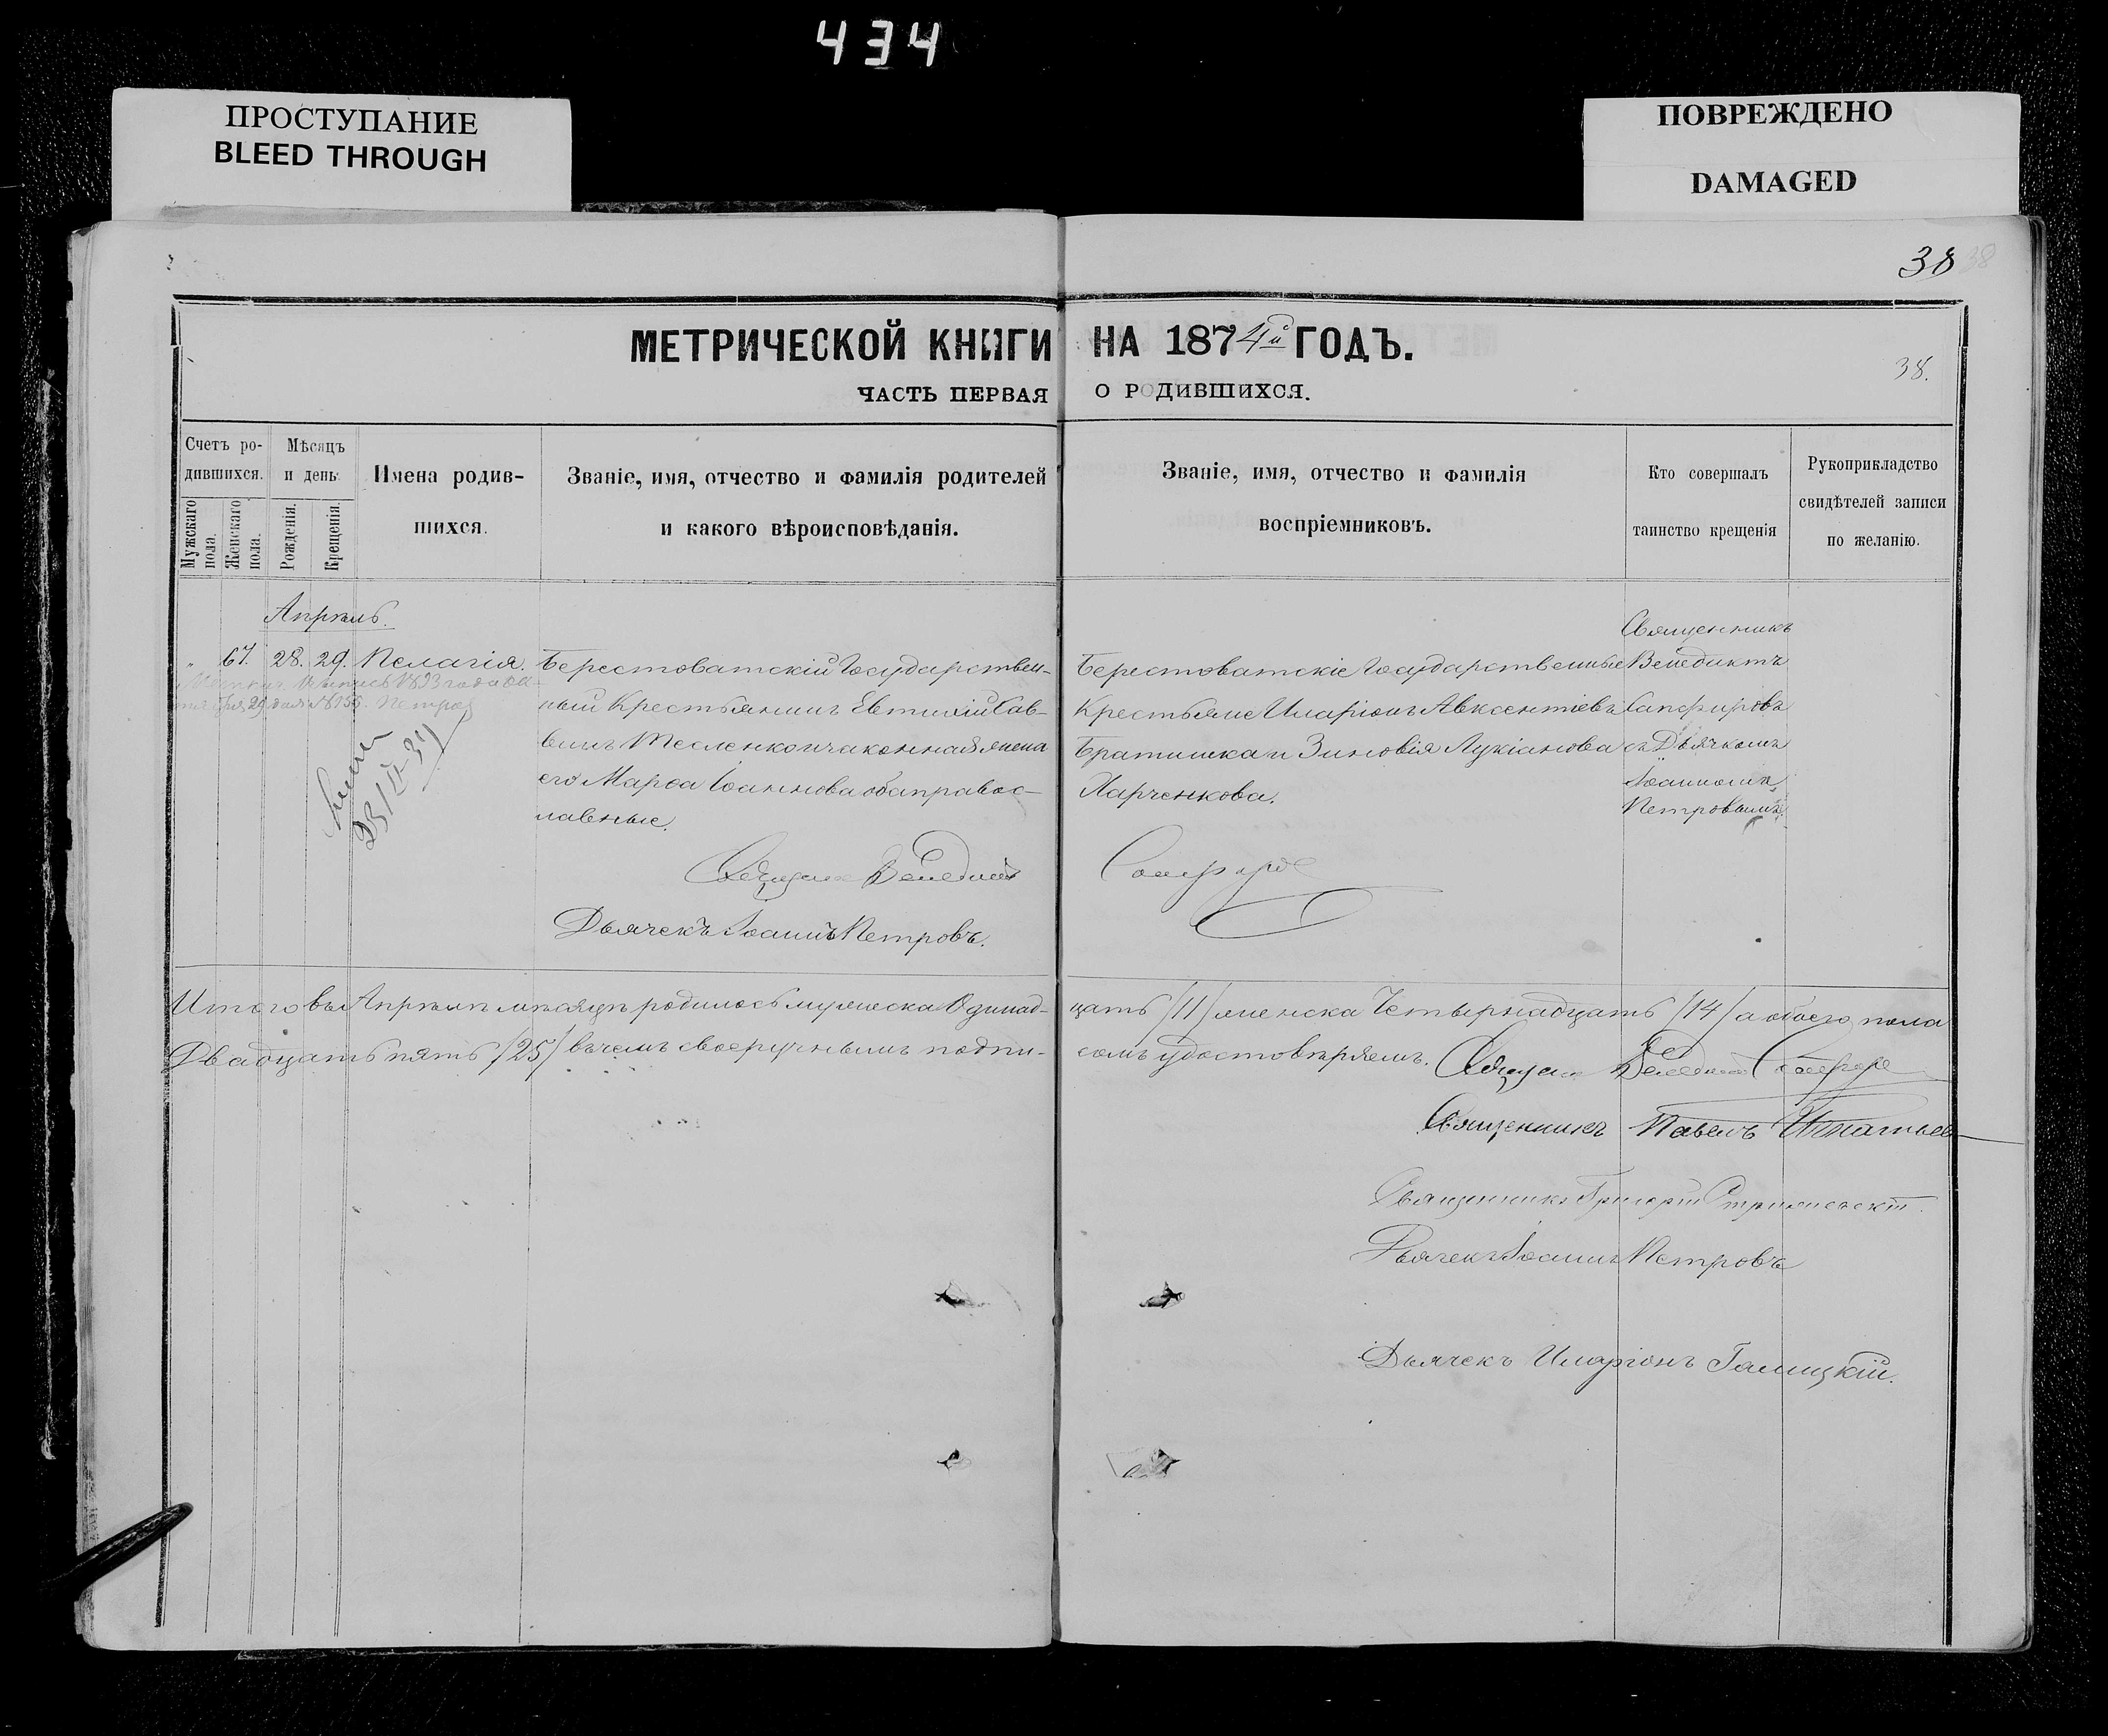 434
ПРОСТУПАНИЕ
BLEED THROUGH
ПОВРЕЖДЕНО
DAMAGED
38 38
МЕТРИЧЕСКОЙ КНИГИ НА 1874й ГОДЪ.
38.
ЧАСТЬ ПЕРВАЯ О РОДИВШИХСЯ.
Счетъ ро-
дившихся.
Мужскаго пола.
Женскаго пола.
Мѣсяцъ
и день.
Рожденія.
Крещенія.
Имена родив-
шихся.
Званіе, имя, отчество и фамилія родителей
и какого вѣроисповѣданія.
Званіе, имя, отчество и фамилія
воспріемниковъ.
Кто совершалъ
таинство крещенія
Рукоприкладство
свидѣтелей записи
по желанію.
Апрѣль.
" 67. 28. 29. Пелагія.
1893 года
29 дня №155. Петров
23/II-34
Берестоватскій Государствен-
ный Крестьянинъ Евтихій Сав-
винъ Тесленко и законная жена
его Марѳа Іоаннова оба правос-
лавные.
Берестоватскіе Государственные
Крестьяне Иларіонъ Авксентіевъ
Братишка и Зиновія Лукіанова
Харченкова.
Священникъ
Венедиктъ
Сапфировъ
съ Дьячкомъ
Іоанномъ
Петровымъ.
Священник Венедикт Сапфиров
Дьячекъ Іоаннъ Петровъ.
Итого въ Апрѣлѣ мѣсяцѣ родилось мужеска Одинад-
цать /11/ женска Четырнадцать /14/ а обоего пола
Двадцать пять /25/ въ чемъ своеручнымъ подпи-
сомъ удостовѣряемъ. Священник Венедикт Сапфиров
Священникъ Павелъ Игнатьев
Священникъ Григорій
Дьячекъ Іоаннъ Петровъ
Дьячекъ Иларіонъ Галицкій.